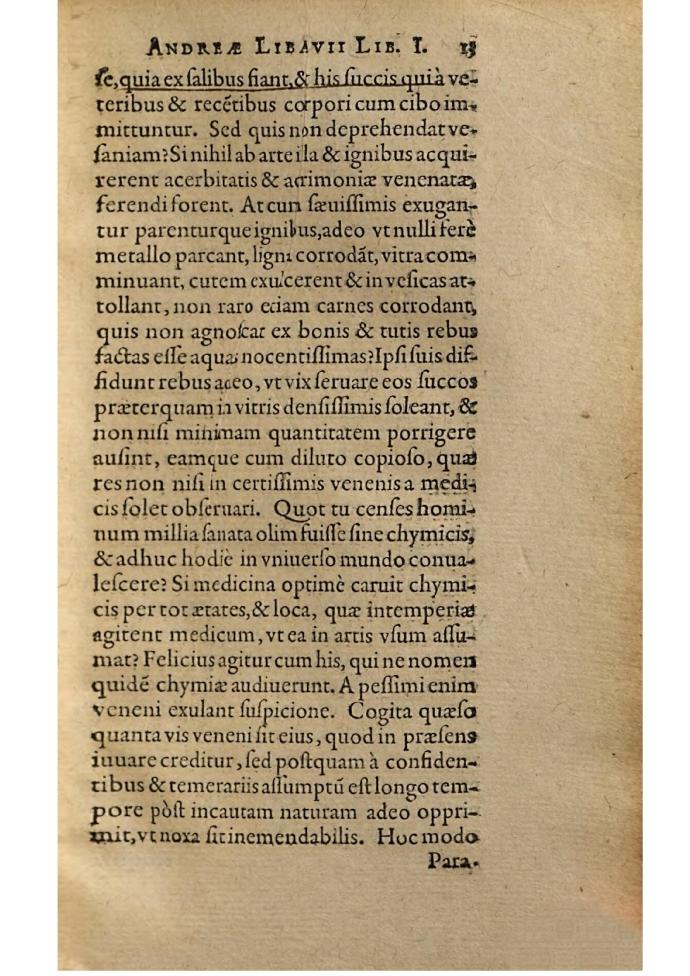 ANDREÆ LIBAVII LIB. I. 13
ſe, quia ex ſalibus fiant, & his ſuccis quià ve-
teribus & recẽtibus corpori cum cibo im-
mittuntur. Sed quis non deprehendat ve-
ſaniam? Si nihil ab arte illa & ignibus acqui-
rerent acerbitatis & acrimoniæ venenatæ,
ferendi forent. At cum ſæuiſſimis exugan-
tur parenturque ignibus, adeo vt nulli ferè
metallo parcant, ligna corrodãt, vitra com-
minuant, cutem exulcerent & in veſicas at-
tollant, non raro etiam carnes corrodant,
quis non agnoſcat ex bonis & tutis rebus
factas eſſe aquas nocentiſſimas? Ipſi ſuis dif-
fidunt rebus adeo, vt vix ſeruare eos ſuccos
præterquam in vitris denſiſſimis ſoleant, &
non niſi minimam quantitatem porrigere
auſint, eamque cum diluto copioſo, quæ
res non niſi in certiſſimis venenis a medi-
cis ſolet obſeruari. Quot tu cenſes homi-
num millia ſanata olim fuiſſe ſine chymicis,
& adhuc hodiè in vniuerſo mundo conua-
leſcere? Si medicina optimè caruit chymi-
cis per tot ætates, & loca, quæ intemperiæ
agitent medicum, vt ea in artis vſum aſſu-
mat? Felicius agitur cum his, qui ne nomen
quidẽ chymiæ audiuerunt. A peſſimi enim
veneni exulant ſuſpicione. Cogita quæſo
quanta vis veneni ſit eius, quod in præſens
iuuare creditur, ſed poſtquam à confiden-
tibus & temerariis aſſumptũ eſt longo tem-
pore pòſt incautam naturam adeo oppri-
mit, vt noxa ſit inemendabilis. Hoc modo
Para-